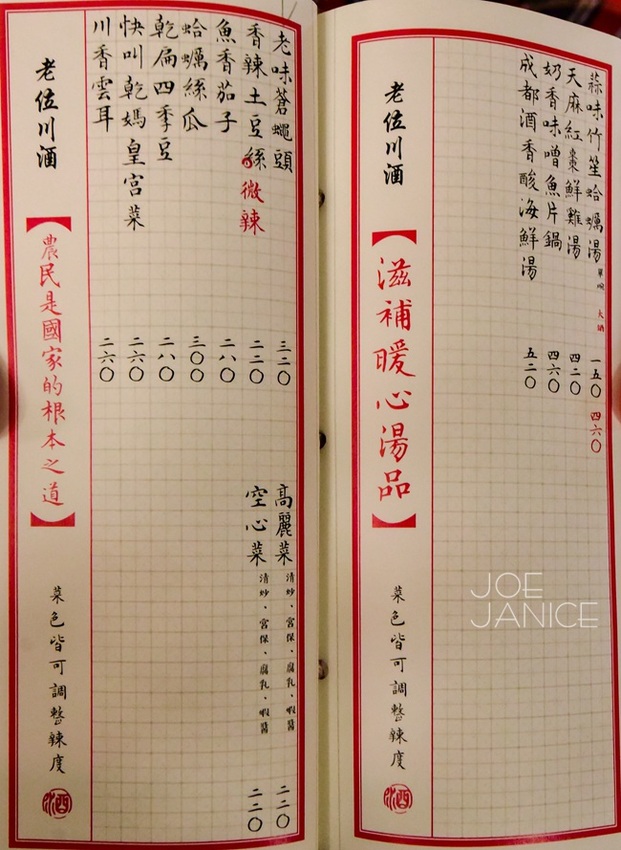 蒜味竹笙蛤蠣湯 大鍋 一五〇 四六〇
天麻紅棗鮮雞湯 四二〇
奶香味噌魚片鍋 四六〇
成都酒香酸海鮮湯 五二〇
老位川酒
【滋補暖心湯品】
菜色皆可調整辣度
老味蒼蠅頭 三二〇
香辣土豆絲 微辣 二二〇
魚香茄子 二八〇
蛤蠣絲瓜 三〇〇
乾扁四季豆 二八〇
快叫乾媽皇宮菜 二六〇
川香雲耳 二六〇
高麗菜 清炒、宮保、腐乳、蝦醬 二二〇
空心菜 清炒、宮保、腐乳、蝦醬 二二〇
老位川酒
【農民是國家的根本之道】
菜色皆可調整辣度
JOE
JANICE